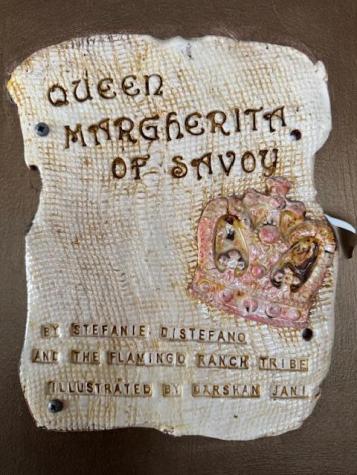 QUEEN
MARGHERITA
OF SAVOY
BY STEFANIE DISTEFANO
AND THE FLAMINGO RANCH TRIBE
ILLUSTRATED BY DARSHAN JANI